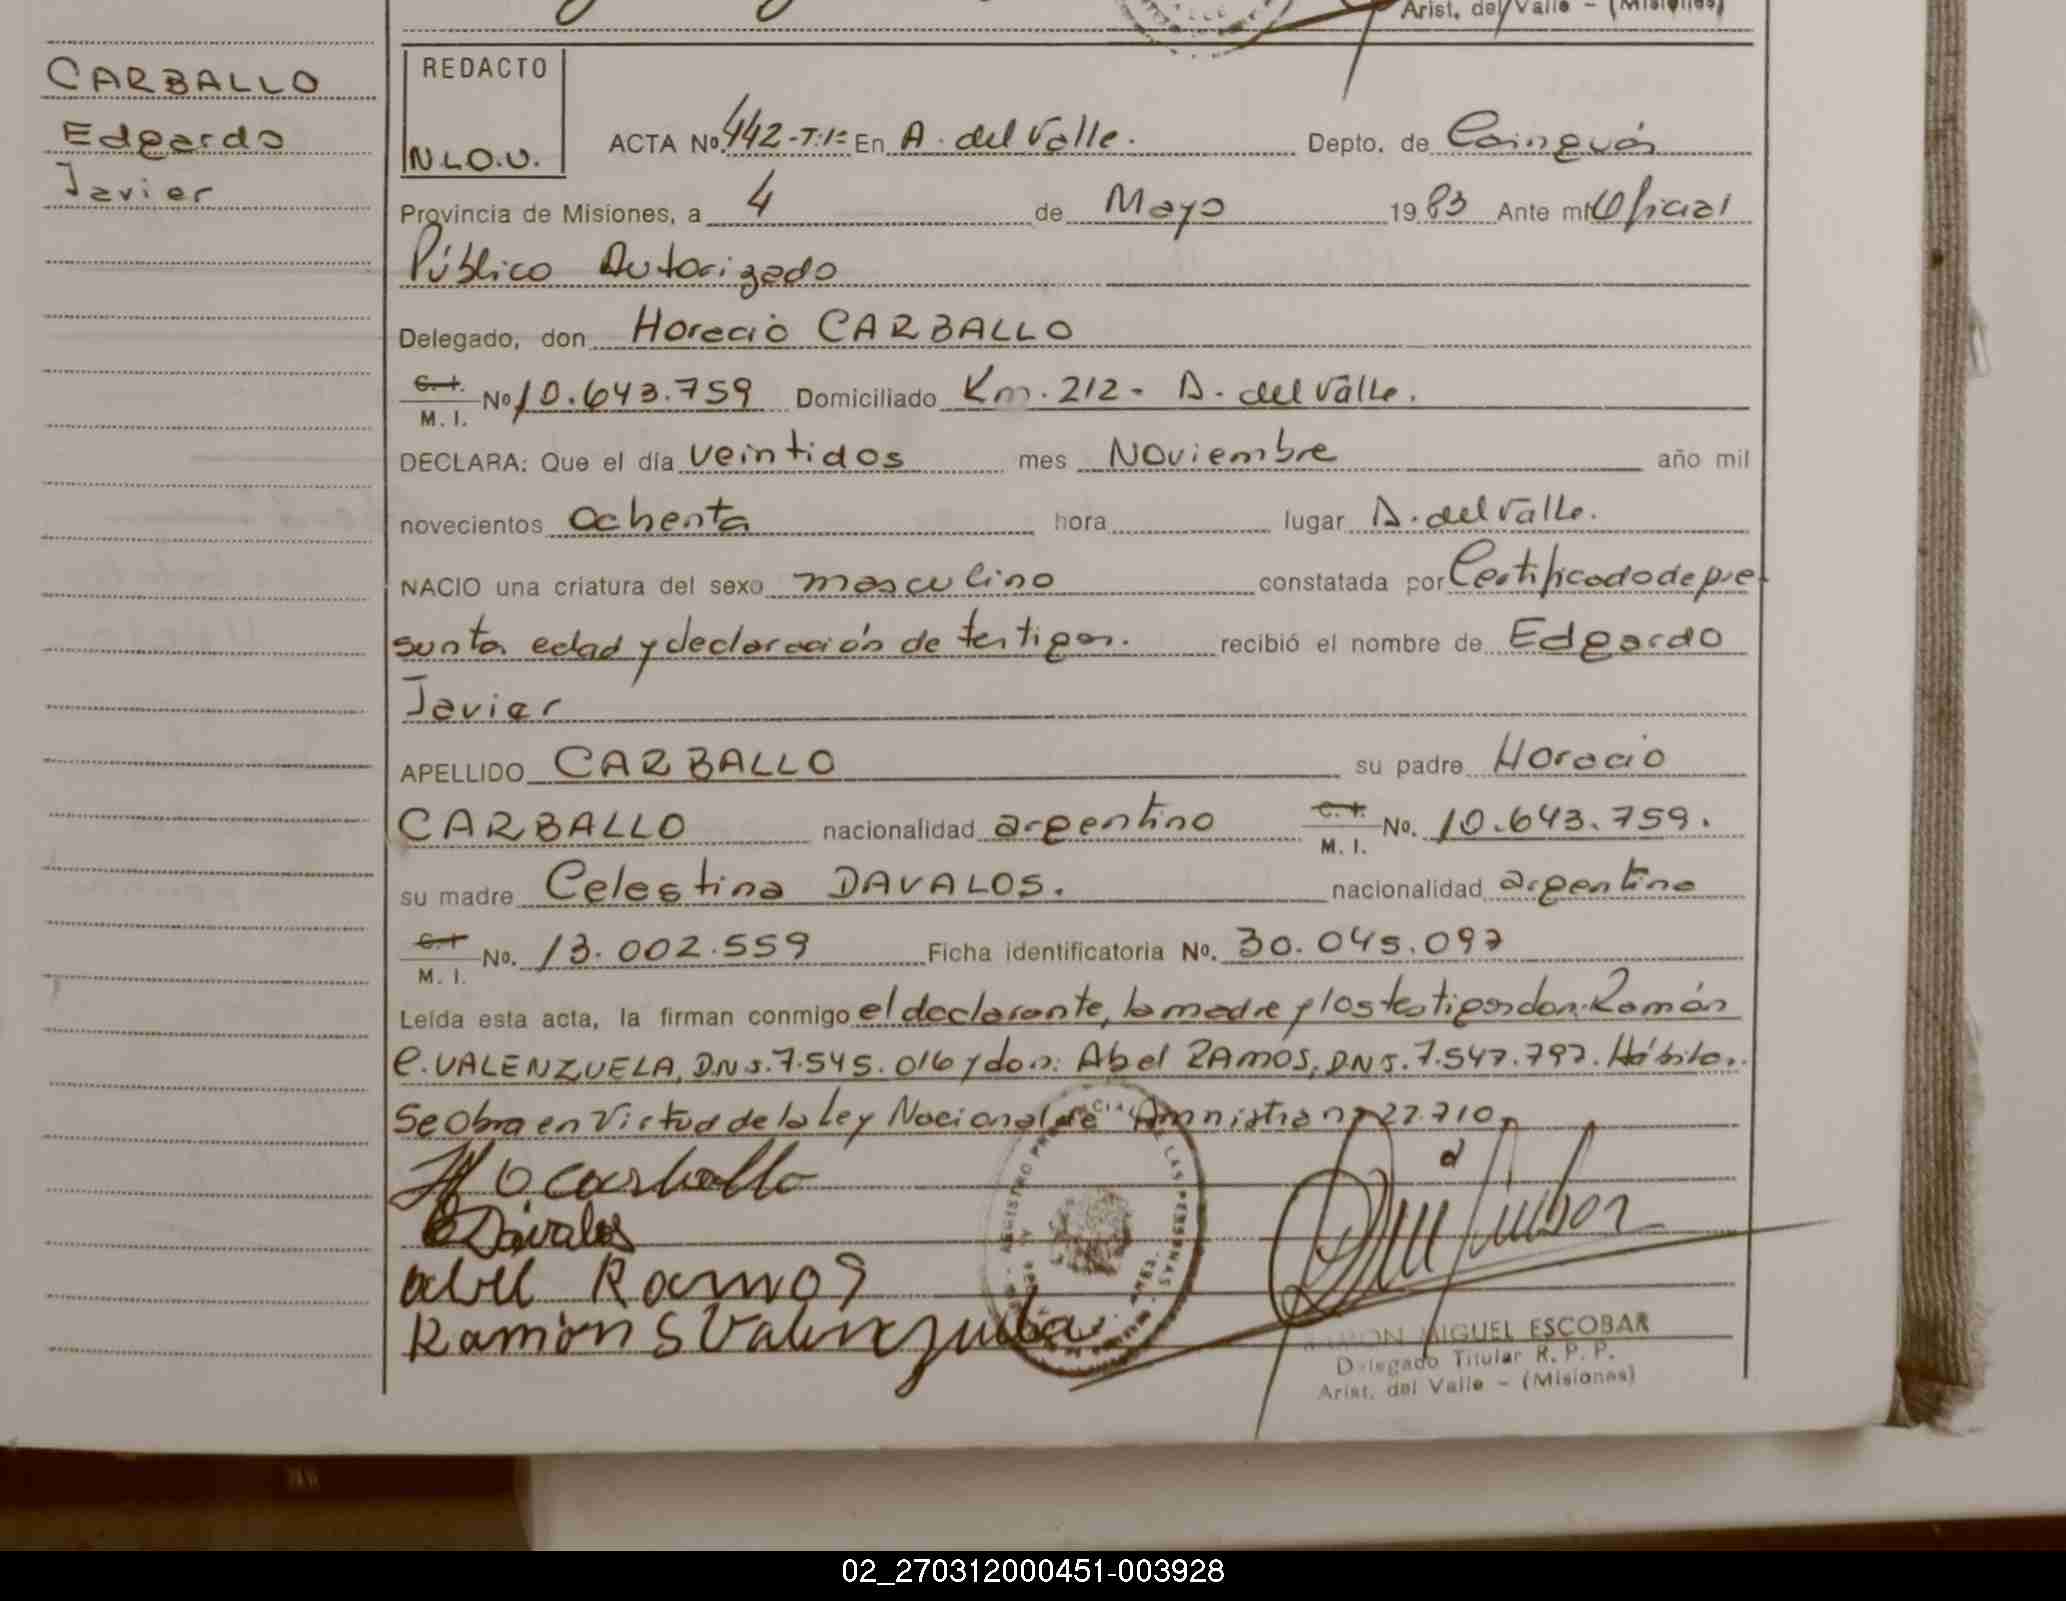 Arist. del Valle - (Misiones)
CARBALLO
Edgardo
Javier
REDACTO
N.L.O.U.
ACTA Nº 442-T:1º En A. del Valle. Depto. de Cainguás
Provincia de Misiones, a 4 de Mayo 1983 Ante mí Oficial
Público Autorizado
Delegado, don Horacio CARBALLO
C. I.
M. I. Nº 10.643.759 Domiciliado Km. 212- A. del Valle.
DECLARA: Que el día veintidos mes Noviembre año mil
novecientos ochenta hora lugar A. del Valle.
NACIO una criatura del sexo masculino constatada por Certificado de pre
sunta edad y declaración de testigos. recibió el nombre de Edgardo
Javier
APELLIDO CARBALLO su padre Horacio
CARBALLO nacionalidad argentino C. I. M. I. No. 10.643.759.
su madre Celestina DAVALOS. nacionalidad argentina
C. I.
M. I. No. 13.002.559 Ficha identificatoria Nº. 30.045.097
Leída esta acta, la firman conmigo el declarante, la madre y los testigos don: Ramón
E. VALENZUELA, DNJ. 7.545.016 y don: Abel RAMOS, DNJ. 7.547.797. Hábiles.
Se Obra en Virtud de la Ley Nacional de Amnistia nº 22.710
H O Carballo
C Dávalos
abel Ramos
Ramón S Valenzuela
REGISTRO PROVINCIAL DE LAS PERSONAS
RAMON MIGUEL ESCOBAR
Delegado Titular R. P. P.
Arist. del Valle - (Misiones)
02_270312000451-003928